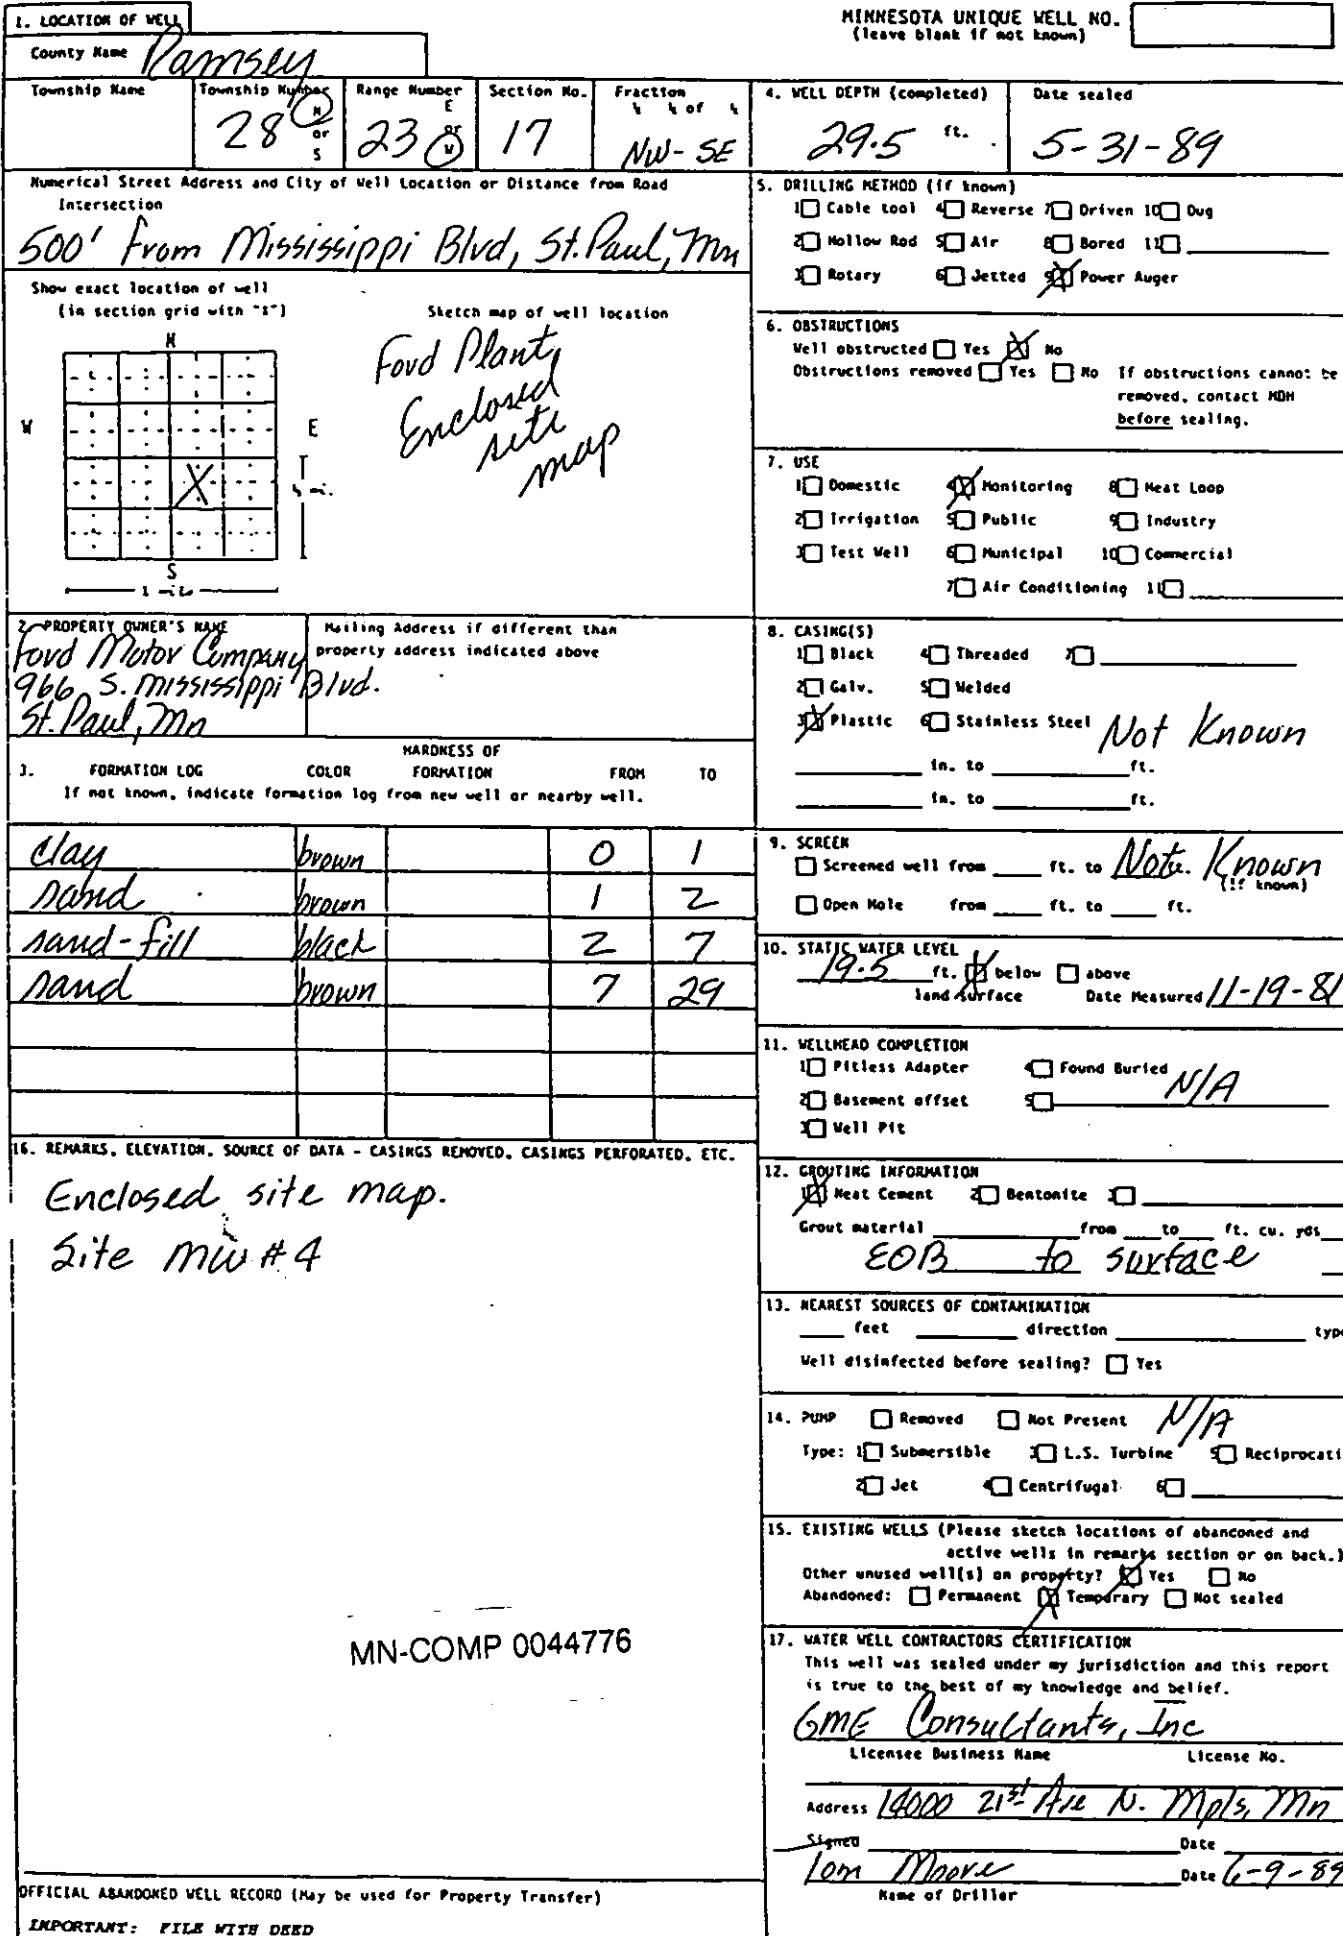 1. LOCATION OF WELL
MINNESOTA UNIQUE WELL NO.
(leave blank if not known)
County Name Ramsey
Township Name
Township Number 28 N or S
Range Number 23 E or W
Section No. 17
Fraction ¼ ¼ of ¼ NW-SE
4. WELL DEPTH (completed) 29.5 ft.
Date sealed 5-31-89
Numerical Street Address and City of Well Location or Distance from Road
Intersection
500' from Mississippi Blvd, St. Paul, Mn
Show exact location of well
(in section grid with "X")
Sketch map of well location
Ford Plant
Enclosed
site
map
N
W
E
S
½ mi.
1 mile
2. PROPERTY OWNER'S NAME
Ford Motor Company
966 S. Mississippi Blvd.
St. Paul, Mn
Mailing Address if different than
property address indicated above
3. FORMATION LOG COLOR HARDNESS OF FORMATION FROM TO
If not known, indicate formation log from new well or nearby well.
clay brown 0 1
sand brown 1 2
sand-fill black 2 7
sand brown 7 29
16. REMARKS, ELEVATION, SOURCE OF DATA - CASINGS REMOVED, CASINGS PERFORATED, ETC.
Enclosed site map.
Site mw #4
MN-COMP 0044776
OFFICIAL ABANDONED WELL RECORD (May be used for Property Transfer)
IMPORTANT: FILE WITH DEED
5. DRILLING METHOD (if known)
1 Cable tool 4 Reverse 7 Driven 10 Dug
2 Hollow Rod 5 Air 8 Bored 11
3 Rotary 6 Jetted 9 Power Auger
6. OBSTRUCTIONS
Well obstructed Yes No
Obstructions removed Yes No If obstructions cannot be
removed, contact MDH
before sealing.
7. USE
1 Domestic 4 Monitoring 8 Heat Loop
2 Irrigation 5 Public 9 Industry
3 Test Well 6 Municipal 10 Commercial
7 Air Conditioning 11
8. CASING(S)
1 Black 4 Threaded 7
2 Galv. 5 Welded
3 Plastic 6 Stainless Steel Not Known
in. to ft.
in. to ft.
9. SCREEN
Screened well from ft. to Note. Known
(if known)
Open Hole from ft. to ft.
10. STATIC WATER LEVEL
19.5 ft. below above
land surface Date Measured 11-19-81
11. WELLHEAD COMPLETION
1 Pitless Adapter 4 Found Buried
2 Basement offset 5 N/A
3 Well Pit
12. GROUTING INFORMATION
1 Neat Cement 2 Bentonite 3
Grout material from to ft. cu. yds
EOB to surface
13. NEAREST SOURCES OF CONTAMINATION
feet direction type
Well disinfected before sealing? Yes
14. PUMP Removed Not Present N/A
Type: 1 Submersible 3 L.S. Turbine 5 Reciprocati
2 Jet 4 Centrifugal 6
15. EXISTING WELLS (Please sketch locations of abanconed and
active wells in remarks section or on back.)
Other unused well(s) on property? Yes No
Abandoned: Permanent Temporary Not sealed
17. WATER WELL CONTRACTORS CERTIFICATION
This well was sealed under my jurisdiction and this report
is true to the best of my knowledge and belief.
GME Consultants, Inc
Licensee Business Name License No.
Address 14000 21st Ave N. Mpls, Mn
Signed Date
Tom Moore Date 6-9-89
Name of Driller